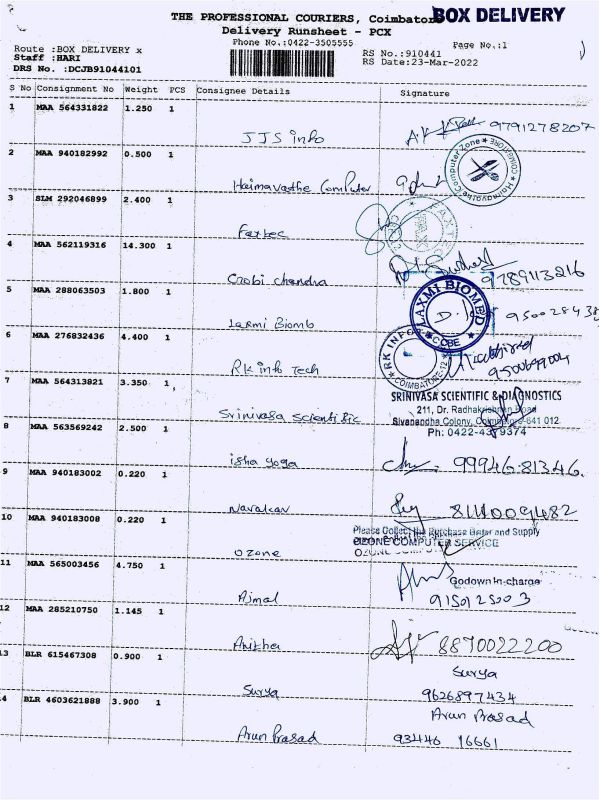 THE PROFESSIONAL COURIERS, Coimbator BOX DELIVERY
Delivery Runsheet - PCX
Phone No.:0422-3505555
Page No.:1
Route :BOX DELIVERY x
RS No.:910441
Staff :HARI
RS Date:23-Mar-2022
DRS No. :DCJB91044101
S No Consignment No Weight PCS Consignee Details Signature
1 MAA 564331822 1.250 1
JJS info 9791278207
2 MAA 940182992 0.500 1
Haimavathe Computer
3 SLM 292046899 2.400 1
Faxtec
4 MAA 562119316 14.300 1
Gobi chandra 9789113216
5 MAA 288063503 1.800 1
LAXMI BIOMED
CBE
Laxmi Biomb
6 MAA 276832436 4.400 1
RK INFO
COIMBATORE-12
RK info Tech
7 MAA 564313821 3.350 1
SRINIVASA SCIENTIFIC & DIAGNOSTICS
211, Dr. Radhakrishnan Road
Srinivasa Scientific
Sivanandha Colony, Coimbatore-641 012
8 MAA 563569242 2.500 1
Ph: 0422-4379374
isha yoga 99946 81346
9 MAA 940183002 0.220 1
Navalcar
10 MAA 940183008 0.220 1
Please Collect the Purchase Order and Supply
OZONE COMPUTER SERVICE
Ozone
11 MAA 565003456 4.750 1
Godown In-charge
Ajmal
12 MAA 285210750 1.145 1
Anitha 8870022200
13 BLR 615467308 0.900 1
Surya
Surya 9626897434
14 BLR 4603621888 3.900 1
Arun Prasad
Arun Prasad 93446 16661